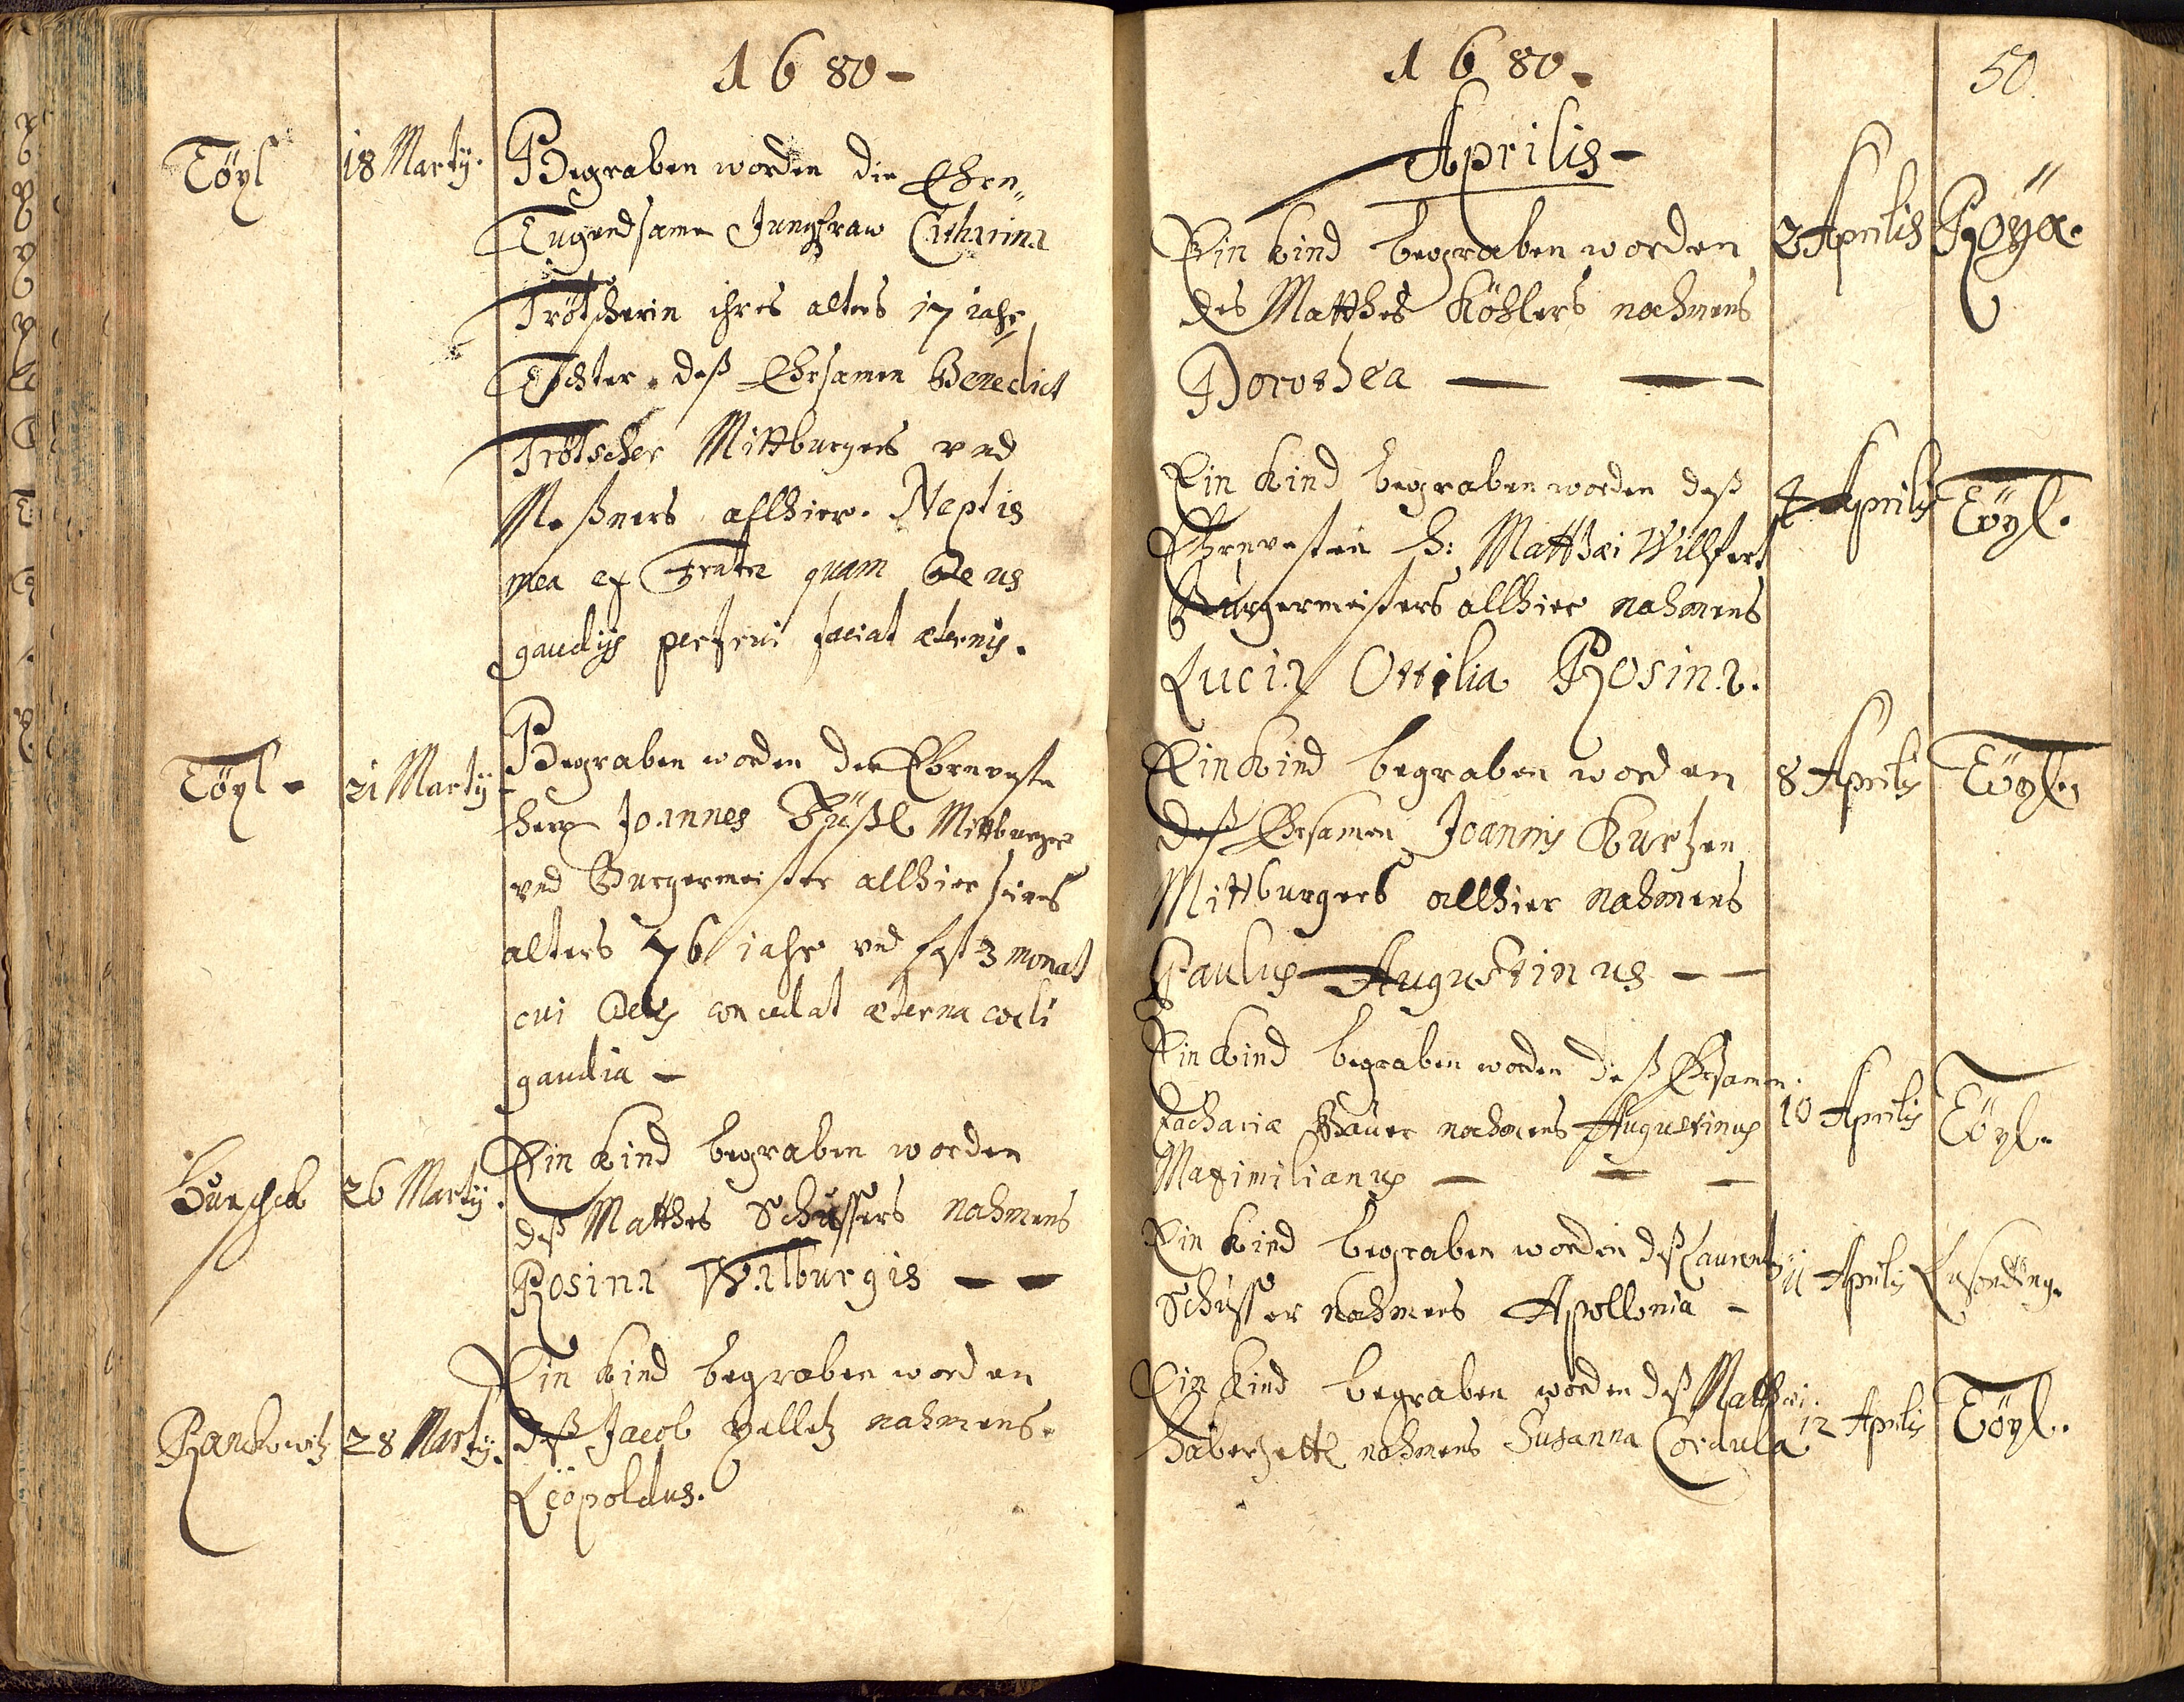 1680
Töyl 18 Marty. Begraben worden die Ehrn„
Tugendsame Jungfraw Catharina
Trötscherin ihres alters 17 iahr
Tochter deß Ehrsamen Benedict
Trötscher Mittburgers vnd
Meßners allhier. Neptis
mea ex Fratre quam Deus
gaudijs perfrui faciat æternis.
Töyl 21 Marty Begraben worden der Ehrnveste
Herr Joannes Füßl Mittburger
vnd Burgermeister allhier seines
alters 76 iahr vnd fast 3 monat
cui Deus concedat æterna coeli
gaudia
26 Marty. Ein Kind begraben worden
deß Matthes Schusser nahmens
Rosina Walburgis
Ranckowitz 28 Marty. Ein Kind begraben worden
deß Jacob nahmens
Leopoldus.
1680
50
Aprilis
Ein Kind begraben worden 2 Aprilis Roya.
des Matthes Köhlers nahmens
Dorothea
Ein Kind begraben worden deß 4 Aprilis Töyl.
Ehrnvesten H: Matthæi Willfert
Burgermeisters allhier nahmens
Lucia Ottilia Rosina.
Ein Kind begraben worden 8 Aprilis Töyl.
deß Ehrsamen Joannis Kurtzen
Mittburgers allhier nahmens
Paulus Augustinus
Ein Kind begraben worden deß Ehrsamen 10 Aprilis Töyl.
Zachariæ Bauer nahmens Augustinus
Maximilianus
Ein Kind begraben worden deß Laurentz 11 Aprilis
Schusser nahmens Apollonia
Ein Kind begraben worden deß Matthæi 12 Aprilis Töyl.
Haberzettl nahmens Susanna Cordula